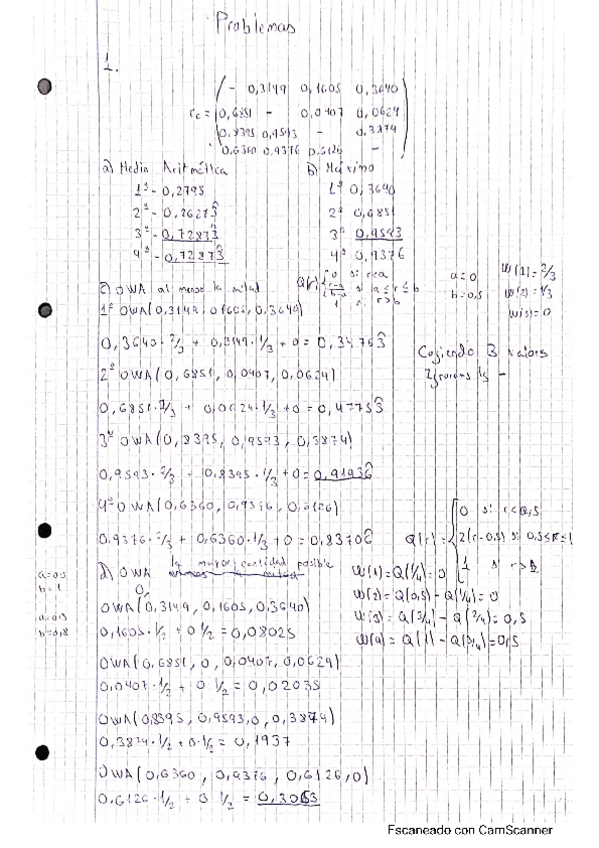 Problemas
1.
- 0,3149 0,1605 0,3640
rc = 0,6851 - 0,0407 0,0624
0,8395 0,9593 - 0,3874
0,6360 0,9376 0,6126 -
a) Media Aritmética
b) Máximo
1ª - 0,2795
1ª 0,3640
2ª - 0,26273
2ª 0,6851
3ª - 0,72873
3ª 0,9593
4ª - 0,72873
4ª 0,9376
c) OWA al menos la mitad
Q(r) 0 si r<a
r-a/b-a si a≤r≤b
1 si r>b
a=0
b=0,5
w(1)=2/3
w(2)=1/3
w(3)=0
1ª OWA(0,3149, 0,1605, 0,3640)
0,3640·2/3 + 0,3149·1/3 + 0 = 0,34763
Cogiendo 3 valores
2ª OWA(0,6851, 0,0407, 0,0624)
0,6851·2/3 + 0,0624·1/3 + 0 = 0,47753
3ª OWA(0,8395, 0,9593, 0,3874)
0,9593·2/3 + 0,8395·1/3 + 0 = 0,9193
4ª OWA(0,6360, 0,9376, 0,6126)
0,9376·2/3 + 0,6360·1/3 + 0 = 0,8370
Q(r) = 0 si r<0,5
2(r-0,5) si 0,5≤r≤1
1 si r>1
d) OWA la mayor cantidad posible
a=0,5
b=1
w(1) = Q(1/4) = 0
w(2) = Q(0,5) - Q(1/4) = 0
w(3) = Q(3/4) - Q(2/4) = 0,5
w(4) = Q(1) - Q(3/4) = 0,5
0,
OWA(0,3149, 0,1605, 0,3640)
0,1605·1/2 + 0 1/2 = 0,08025
OWA(0,6851, 0, 0,0407, 0,0624)
0,0407·1/2 + 0 1/2 = 0,02035
OWA(0,8395, 0,9593, 0, 0,3874)
0,3874·1/2 + 0·1/2 = 0,1937
OWA(0,6360, 0,9376, 0,6126, 0)
0,6126·1/2 + 0 1/2 = 0,3063
Escaneado con CamScanner